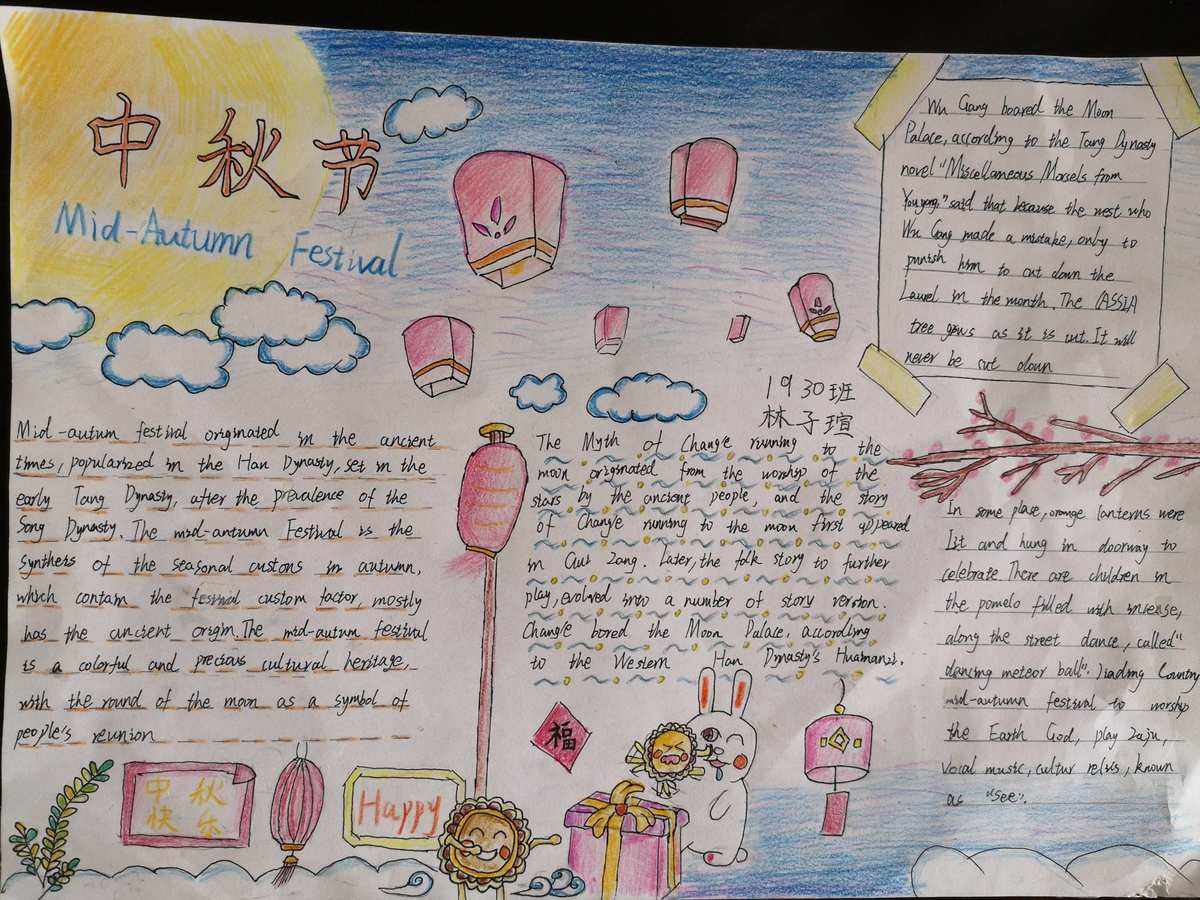 中秋节
Mid-Autumn Festival
Wu Gang boared the Moon
Palace, according to the Tang Dynasty
novel "Miscellaneous Morsels from
Youyang," said that because the west who
Wu Gang made a mistake, only to
punish him to cut down the
Laurel in the month. The CASSIA
tree grows as it is cut. It will
never be cut down
1930班
林子瑄
Mid-autum festival originated in the ancient
times, popularized in the Han Dynasty, set in the
early Tang Dynasty, after the prevalence of the
Song Dynasty. The mid-antumn Festival is the
synthers of the seasonal custons in autumn,
which contam the festival custom factor, mostly
has the ancient origin. The mid-autum festival
is a colorful and precious cultural heritage,
with the round of the moon as a symbol of
people's reunion
The Myth of Change running to the
moon originated from the worship of the
stars by the ancient people, and the story
of Change running to the moon first appeared
in Gui Zang. Later, the folk story to further
play, evolved into a number of story version.
Change bored the Moon Palace, according
to the Western Han Dynasty's Huainanzi.
In some place, orange lanterns were
list and hung in doorway to
celebrate. There are children in
the pomelo filled with incense,
along the street dance, called"
dancing meteor ball". Jiading Country
mid-autumn festival to worship
the Earth God, play zaju,
vocal music, cultur relics, known
as "see".
中秋
快乐
Happy
福